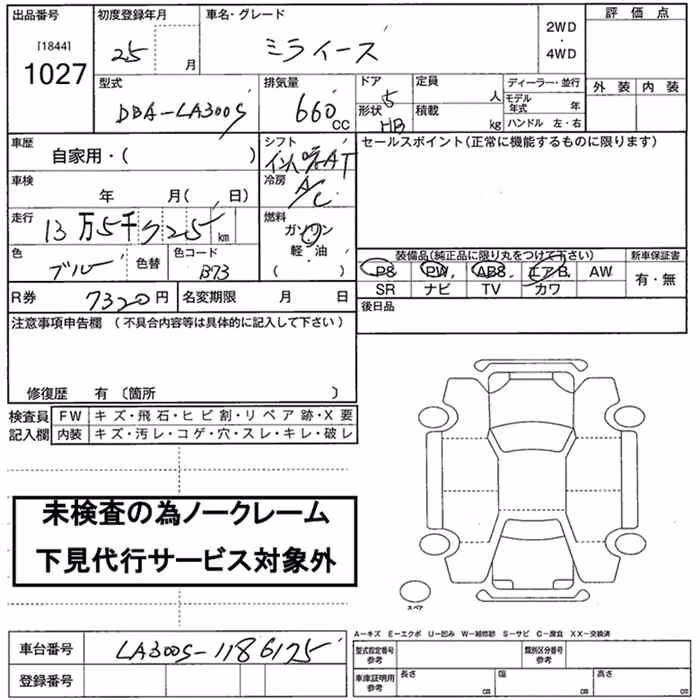 出品番号 初度登録年月 車名・グレード 評価点
[1844]
1027
25 月 ミライース 2WD・4WD
外装 内装
型式 排気量 ドア 定員 ディーラー・並行
DBA-LA300S 660 CC 5 人 モデル年式 年
形状 積載 HB kg ハンドル 左・右
車歴 シフト セールスポイント(正常に機能するものに限ります)
自家用・( ) AT
車検 冷房
年 月( 日) A/C
走行 燃料
13万5千 25 km ガソリン
軽・油
( )
色 色替 色コード
ブルー B73
装備品(純正品に限り丸をつけて下さい) 新車保証書
PS PW ABS エアB AW 有・無
SR ナビ TV カワ
R券 7320円 名変期限 月 日
後日品
注意事項申告欄 (不具合内容等は具体的に記入して下さい)
修復歴 有〔箇所 〕
検査員 FW キズ・飛石・ヒビ割・リペア跡・X要
記入欄 内装 キズ・汚レ・コゲ・穴・スレ・キレ・破レ
未検査の為ノークレーム
下見代行サービス対象外
スペア
A-キズ E-エクボ U-凹み W-補修跡 S-サビ C-腐食 XX-交換済
車台番号 LA300S-1186125
型式指定番号 参考 類別区分番号 参考
登録番号
車庫証明用 参考 長さ cm 幅 cm 高さ cm